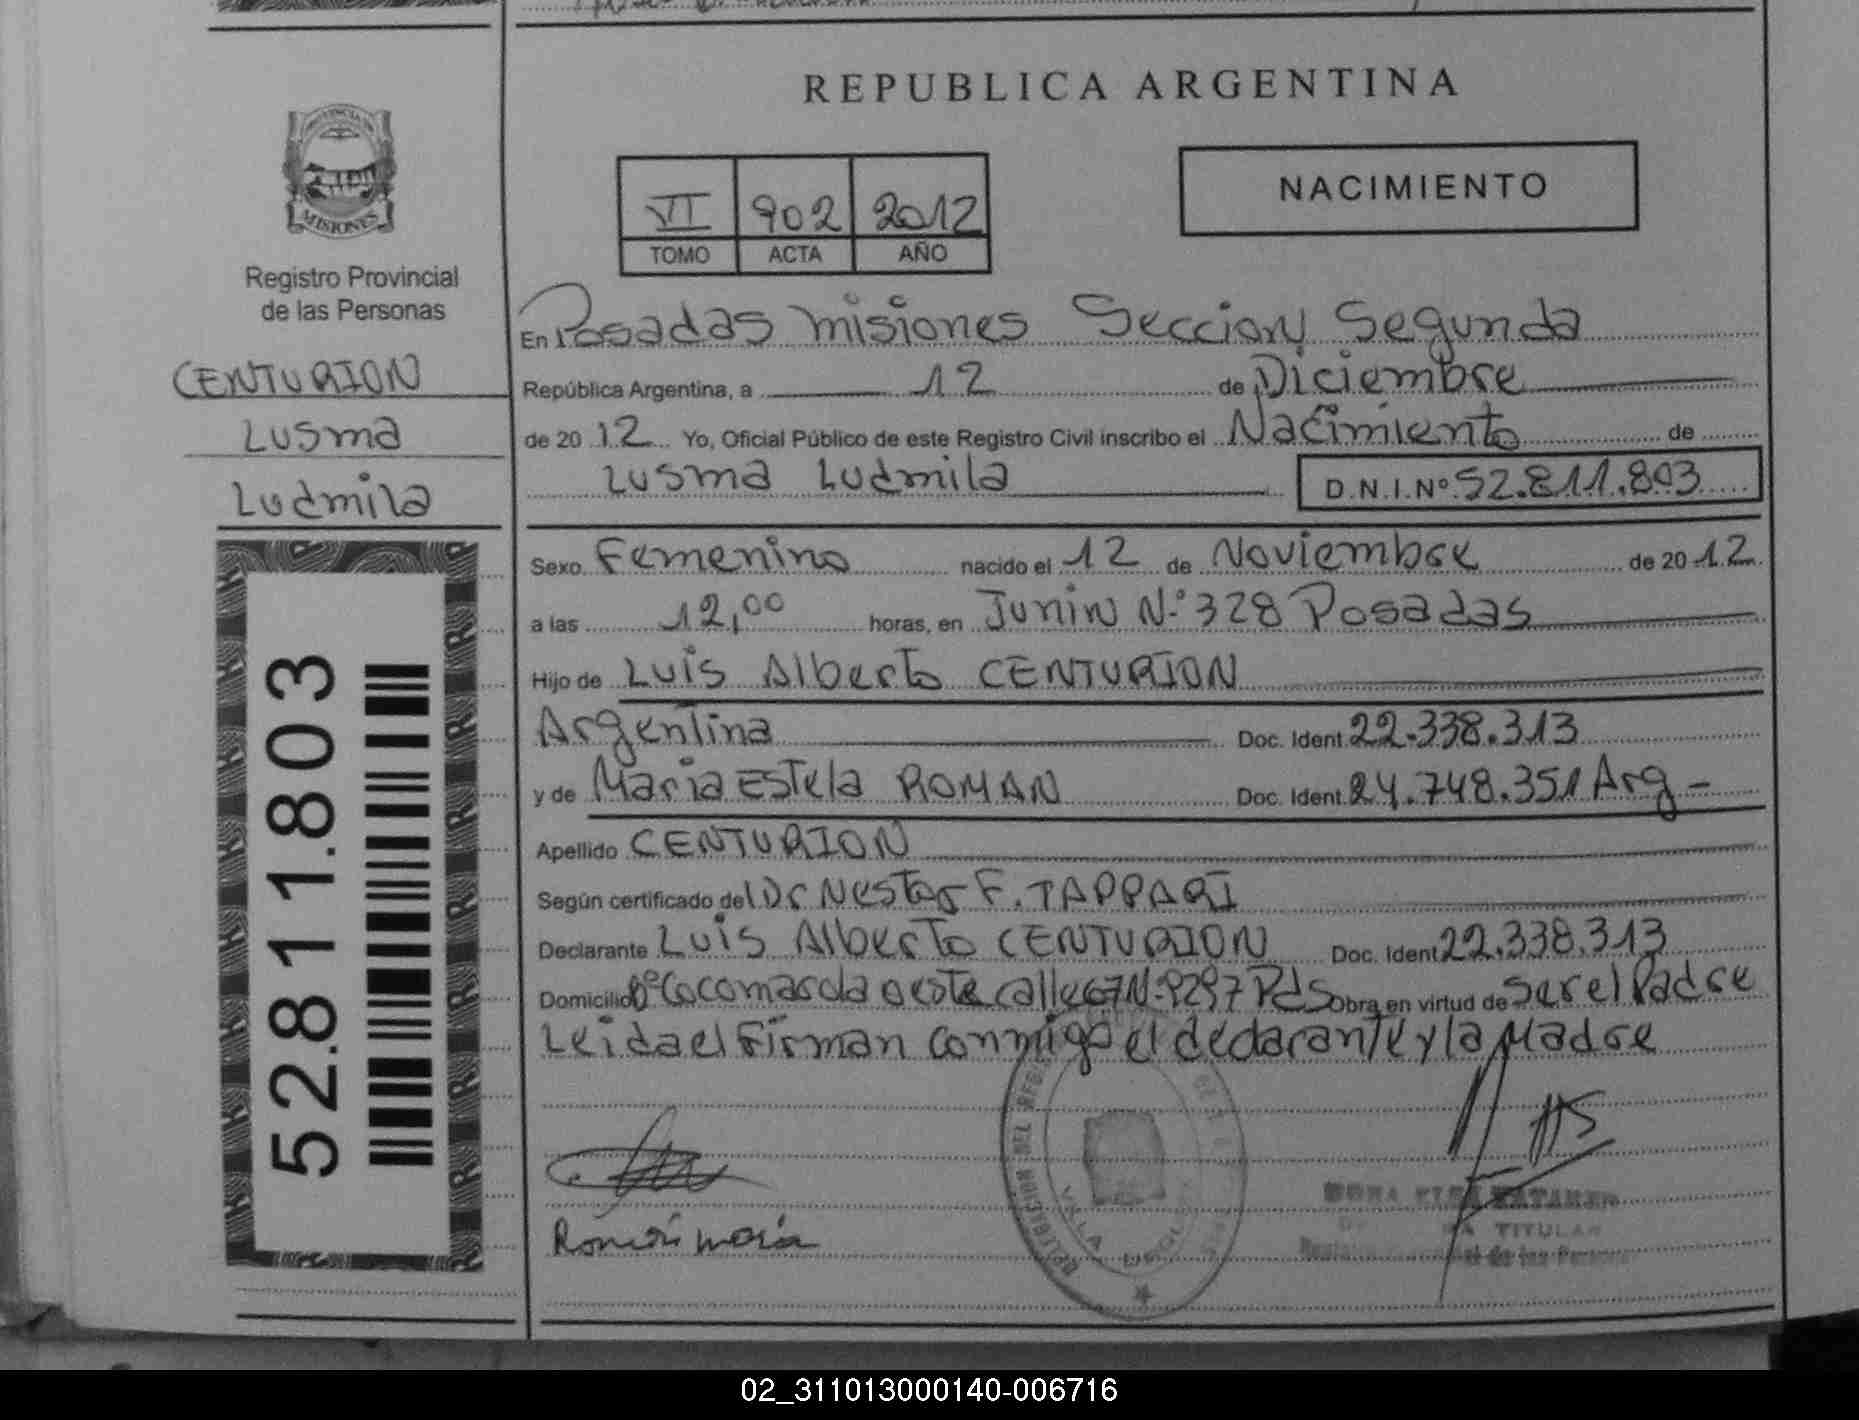 REPUBLICA ARGENTINA
PROVINCIA DE
MISIONES
Registro Provincial
de las Personas
CENTURION
Lusma
Ludmila
52.811.803
VI 902 2012
TOMO ACTA AÑO
NACIMIENTO
En Posadas Misiones Seccion Segunda
República Argentina, a 12 de Diciembre
de 20 12 Yo, Oficial Público de este Registro Civil inscribo el Nacimiento de
Lusma Ludmila D.N.I.Nº 52.811.803
Sexo Femenino nacido el 12 de Noviembre de 20 12
a las 12,00 horas, en Junin N.º 328 Posadas
Hijo de Luis Alberto CENTURION
Argentina Doc. Ident. 22.338.313
y de Maria Estela ROMAN Doc. Ident. 24.748.351 Arg -
Apellido CENTURION
Según certificado del Dr Nestor F. TAPPARI
Declarante Luis Alberto CENTURION Doc. Ident. 22.338.313
Domicilio Bº Cocomarola oeste calle 67 N- 9297 Pds Obra en virtud de ser el Padre
Leida el Firman conmigo el declarante y la Madre
Román María
TITULAR
de las Personas
02_311013000140-006716